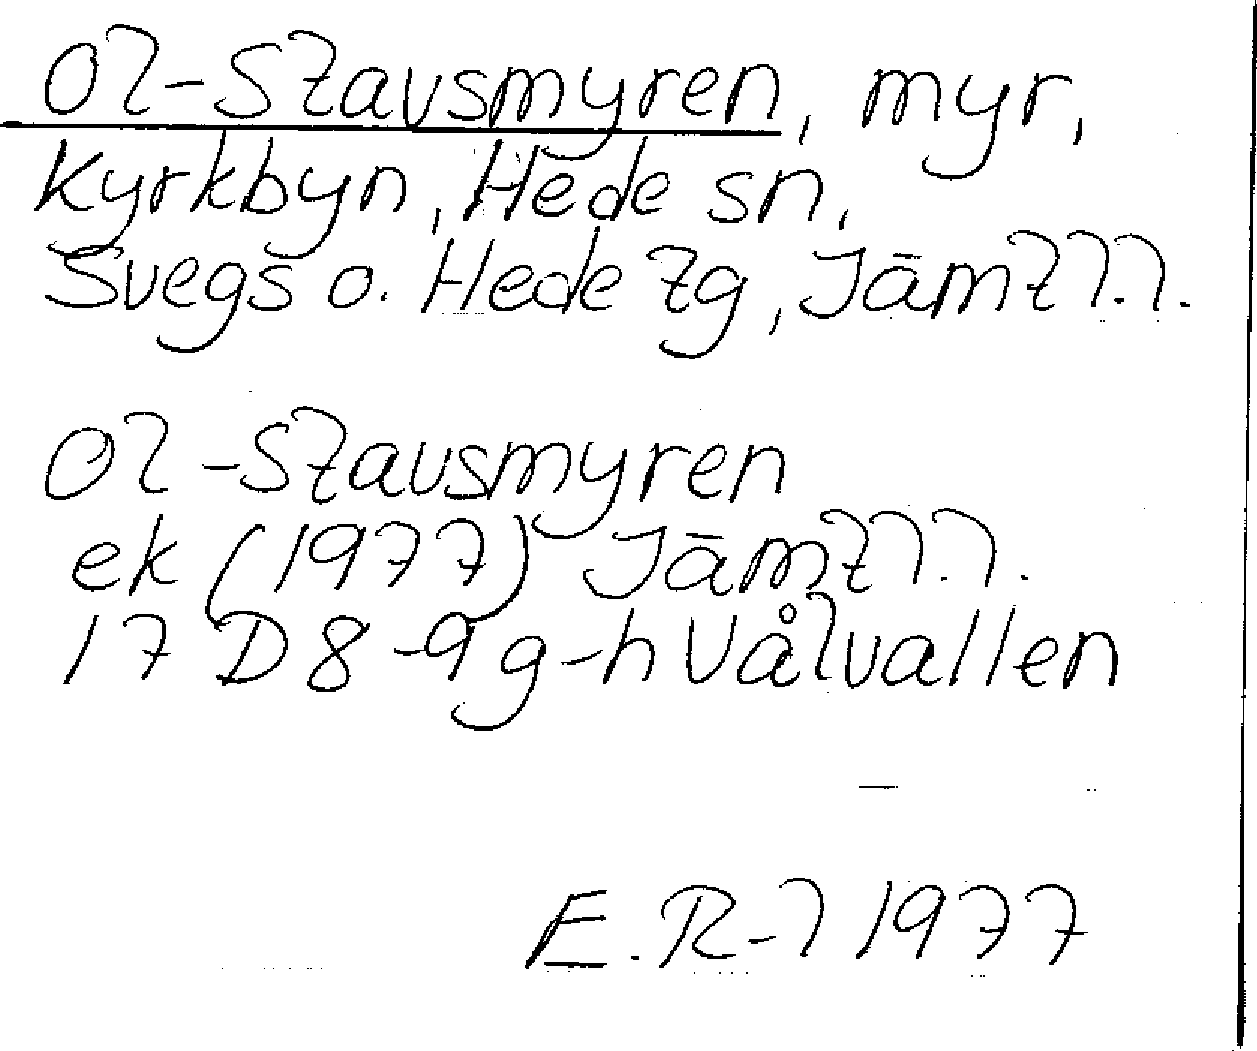 Ol-Stavsmyren, myr,
Kyrkbyn, Hede sn,
Svegs o. Hede tg, Jämtl.l.
Ol-Stavsmyren
ek (1977) Jämtl.l.
17D8-9g-h Vålvallen
E.R-l 1977